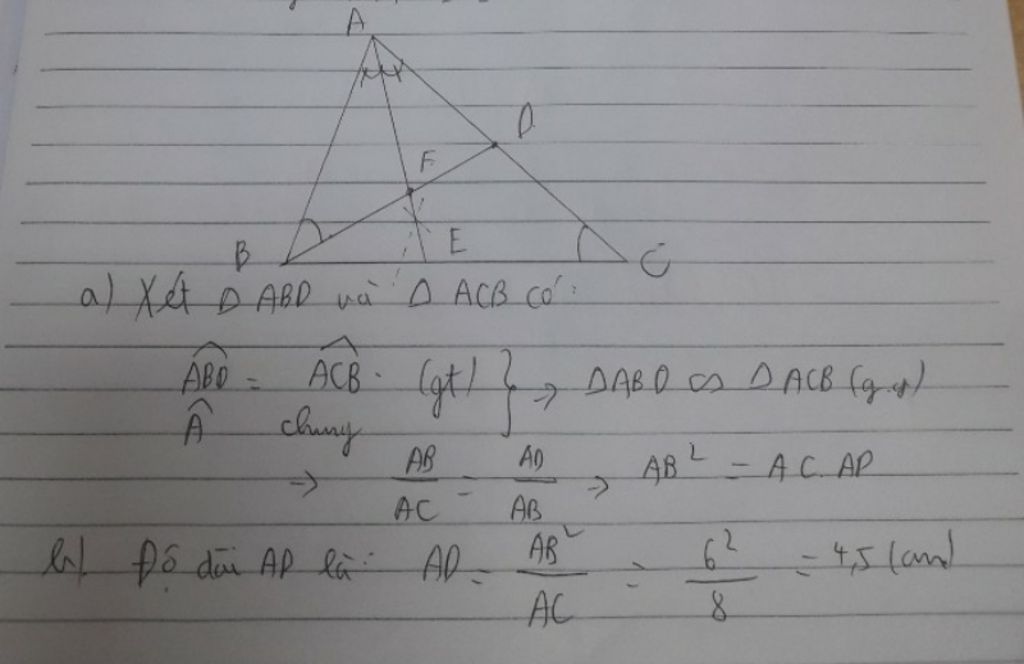 A
D
F
B
E
C
a) Xét Δ ABD và Δ ACB có:
ABD = ACB (gt)
A chung } → ΔABD ∽ ΔACB (g.g)
→ AB/AC = AD/AB → AB² = AC.AD
b) Độ dài AD là: AD = AB²/AC = 6²/8 = 4,5 (cm)